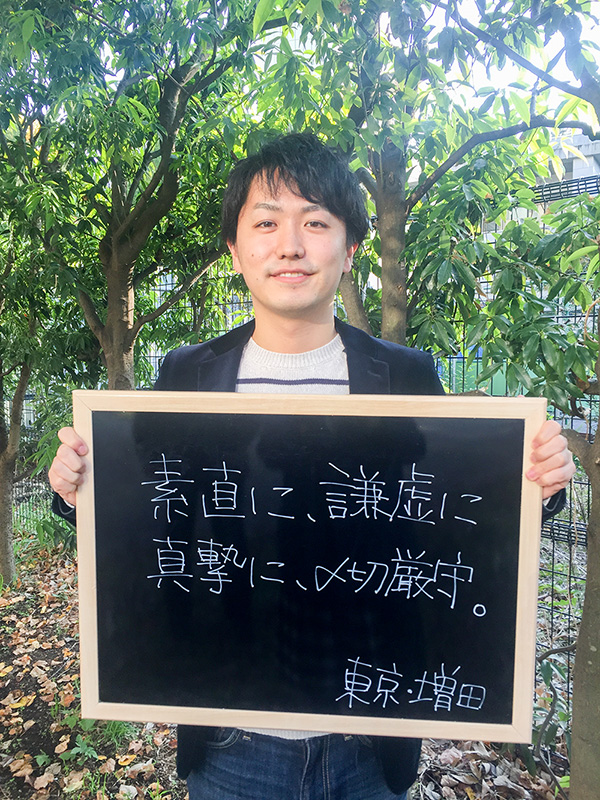 素直に、謙虚に
真摯に、〆切厳守。
東京・増田